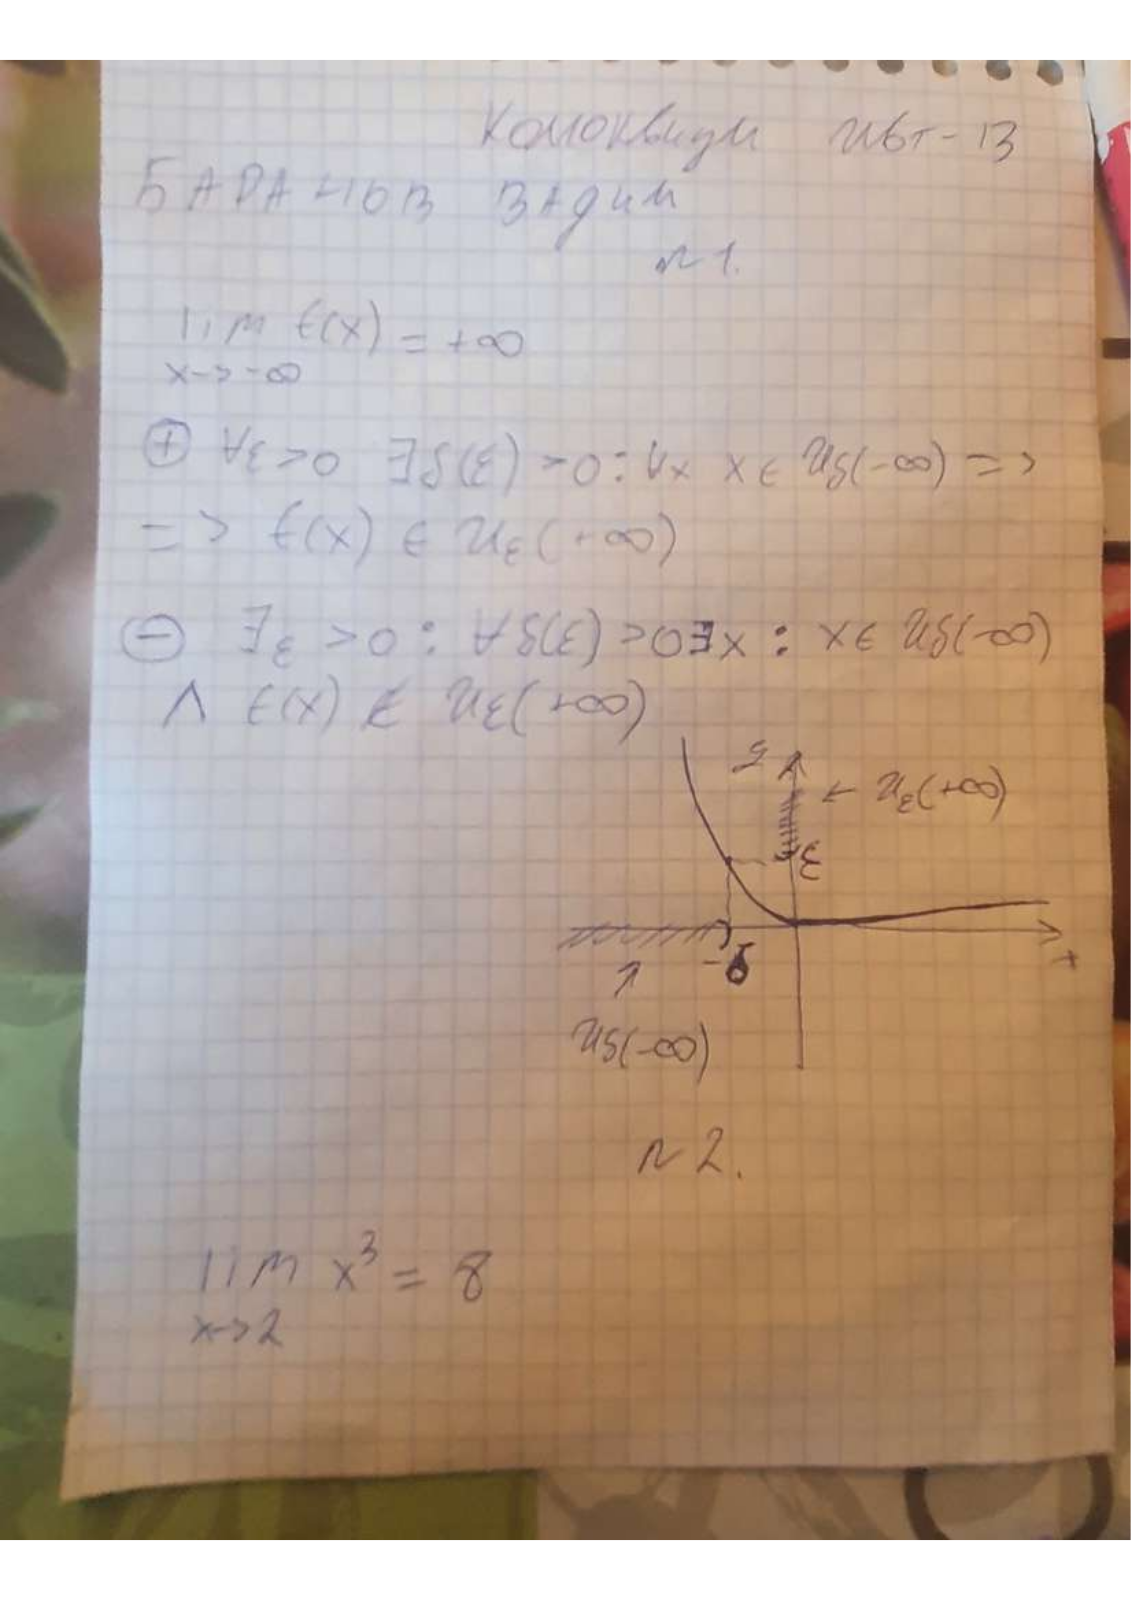 Колоквиум Ивт-13
БАРАНОВ ВАДИМ
n 1.
lim f(x) = +∞
x->-∞
⊕ ∀ε>0 ∃δ(ε)>0:∀x x∈Uδ(-∞) =>
=> f(x) ∈ Uε(+∞)
⊖ ∃ε>0: ∀δ(ε)>0∃x: x∈Uδ(-∞)
∧ f(x) ∉ Uε(+∞)
y
← Uε(+∞)
ε
-δ
x
↑
Uδ(-∞)
n 2.
lim x³ = 8
x->2